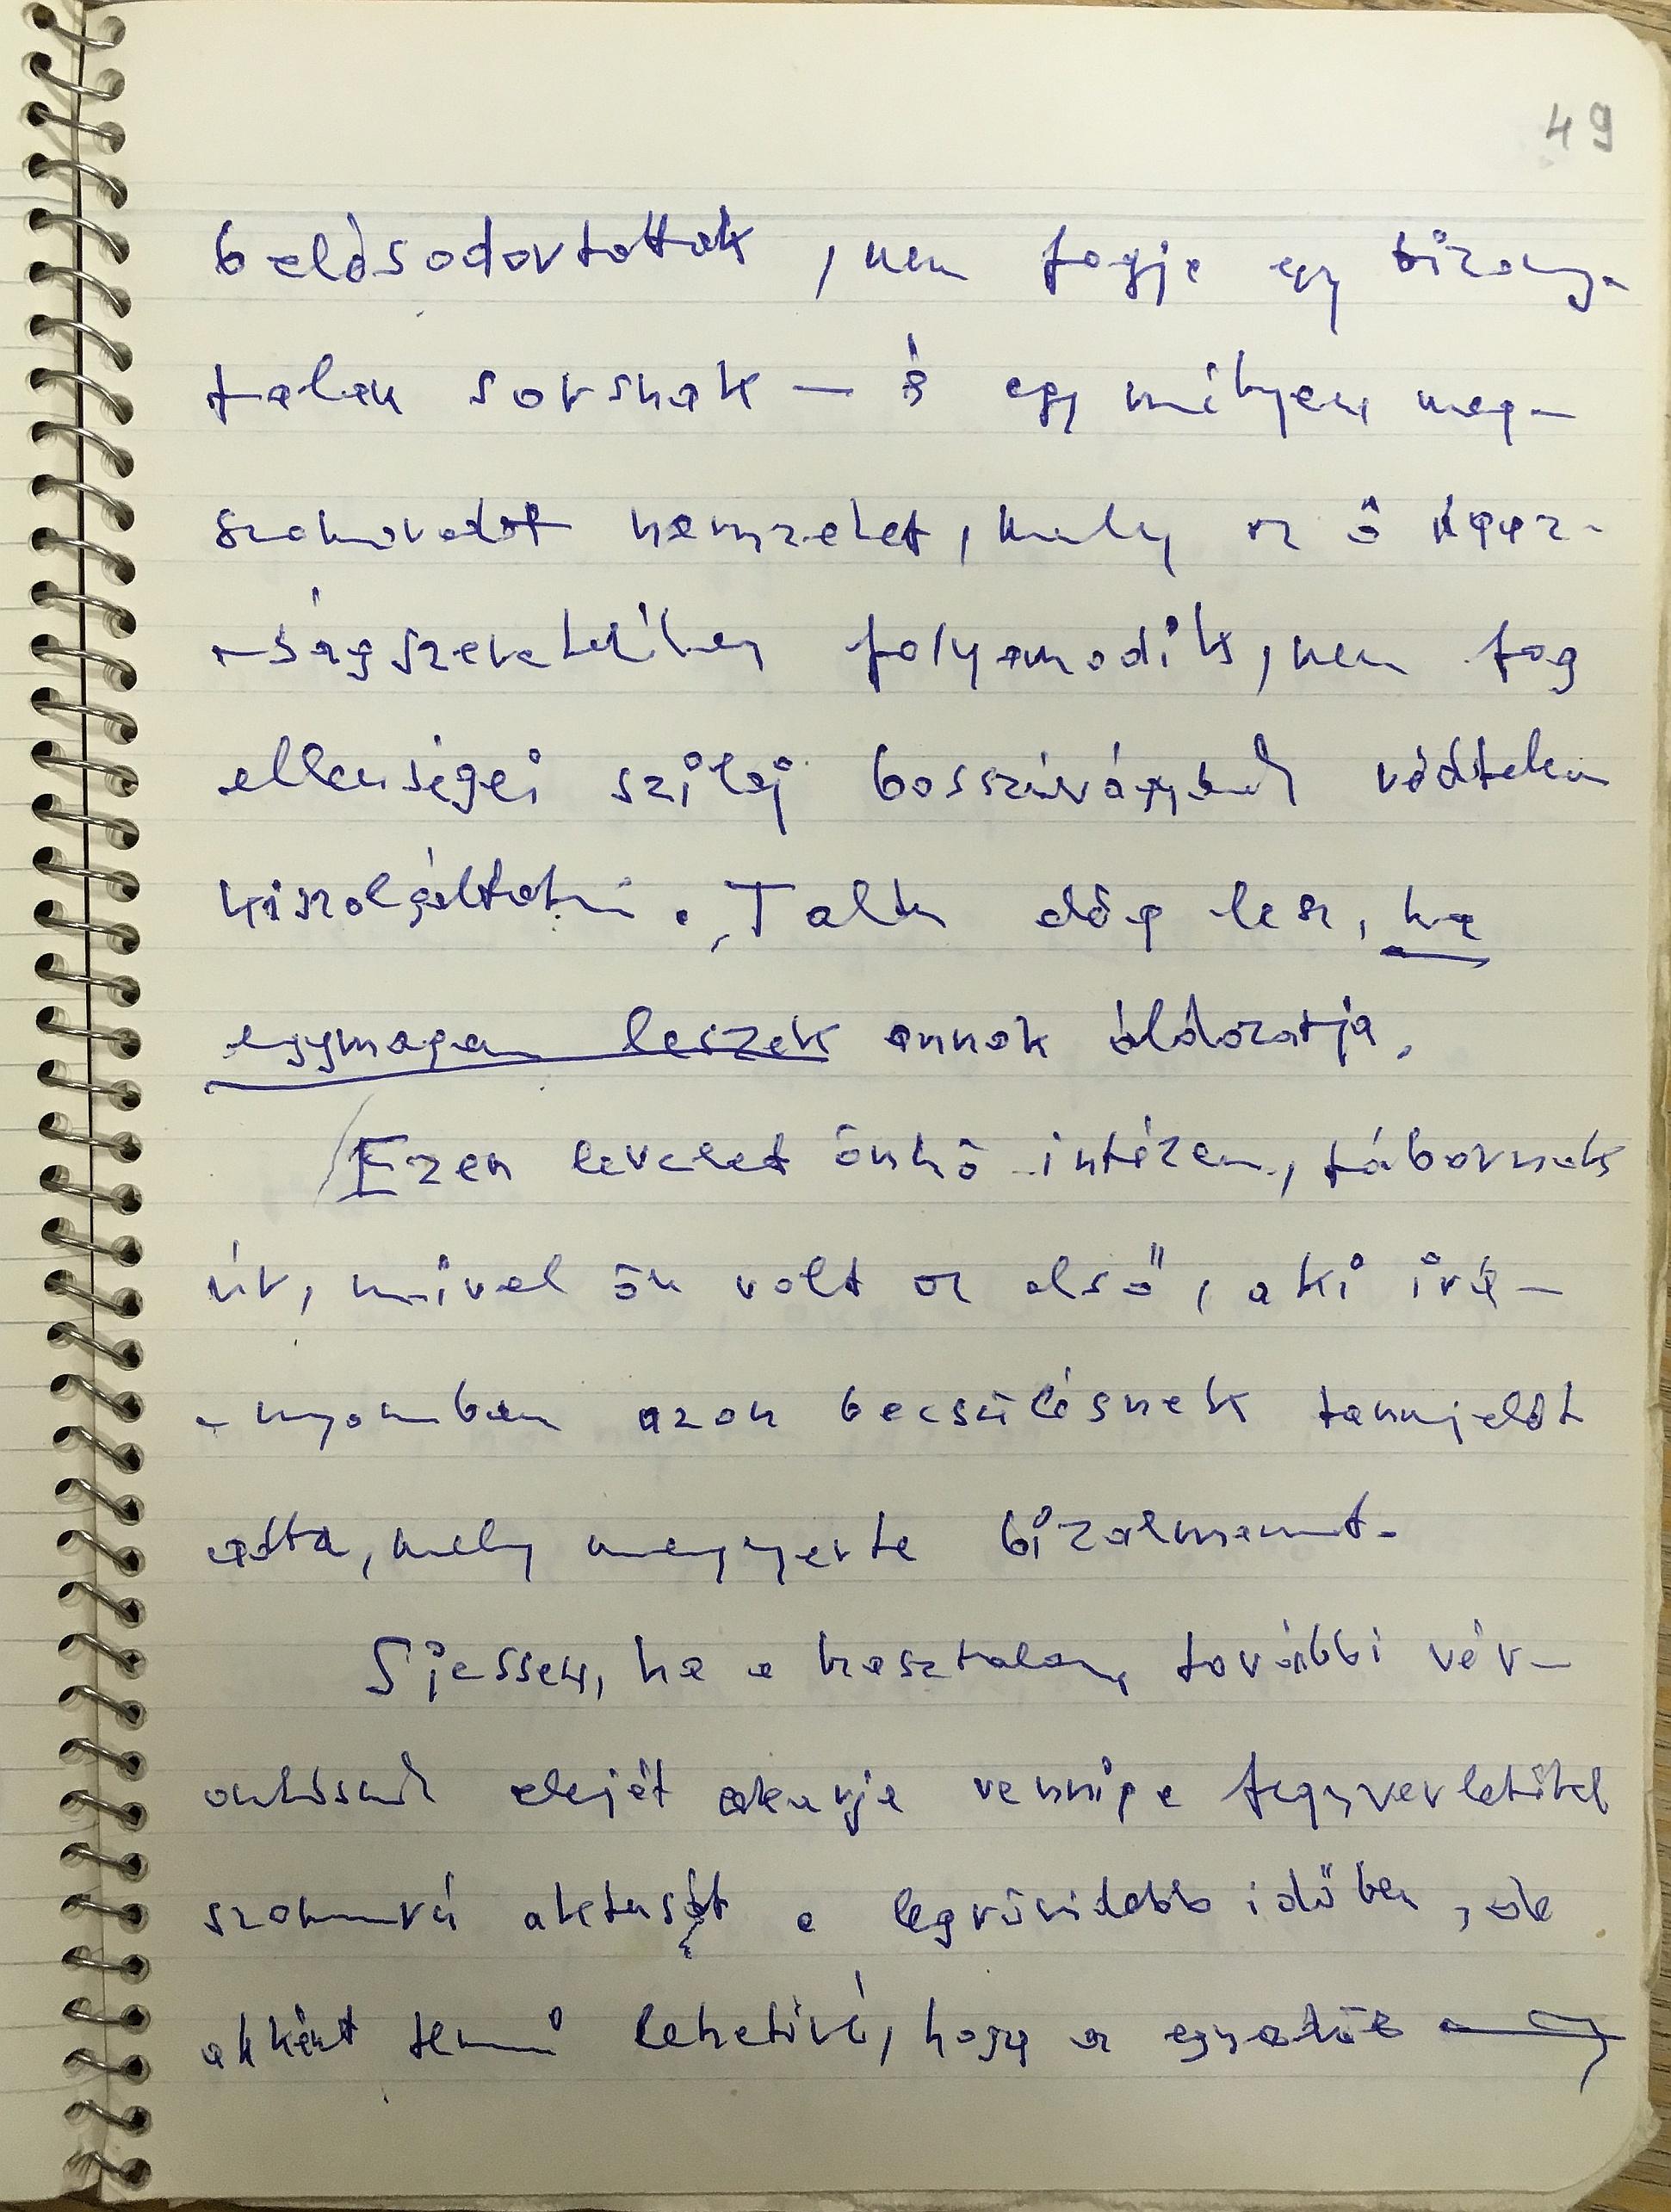 49
belésodortattak, nem fogja egy bizony-
talan sorsnak — és egy mélyen meg-
szomorodott nemzetet, mely az ő igaz-
-ságszeretetében folyamodik, nem fog
ellenségei szilaj bosszúvágyának védtelen
kiszolgáltatni. Talán elég lesz, ha
egymagam leszek annak áldozatja.
Ezen levelet önhö intézem, tábornok
úr, mivel ön volt az első, aki irá-
-nyomban azon becsülésnek tanujelét
adta, mely megnyerte bizalmamat.
Sijessen, ha a hasztalan, további vér-
ontásnak elejét akarja venni, a fegyverletétel
szomorú aktusát a legrövidebb időben, de
akként tenni lehetővé, hogy az